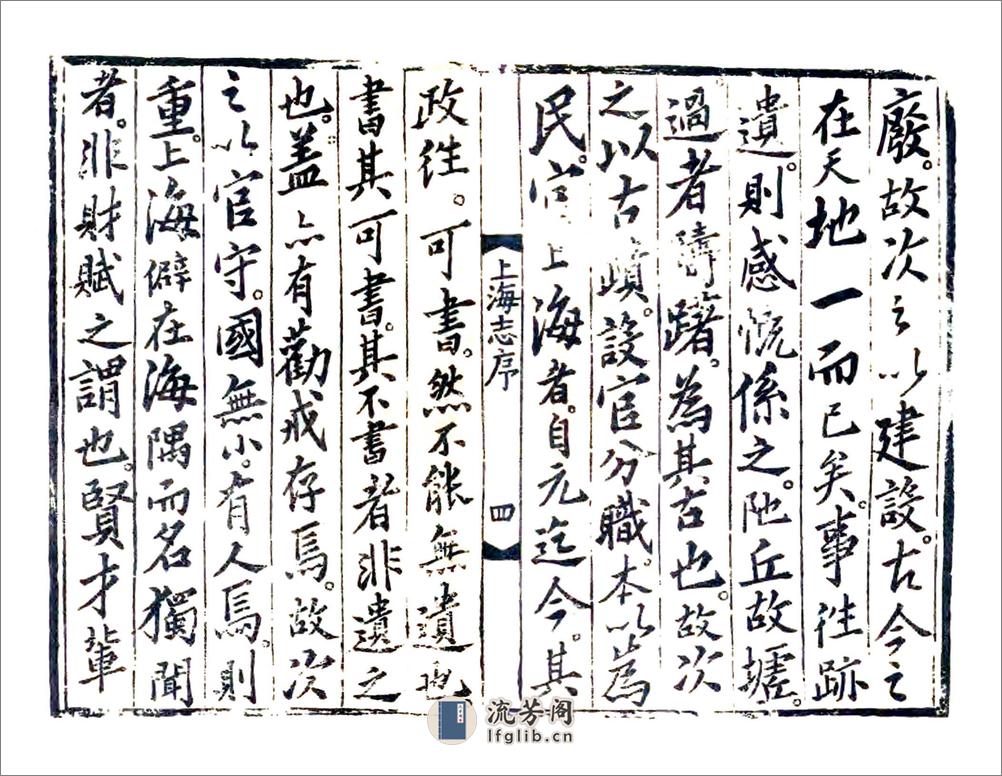 廢。故次之以建設。古今之
在天地一而已矣。事往跡
遺。則感慨係之。阤丘故墟。
過者躊躇。為其古也。故次
之以古蹟。設官分職。本以為
民。官上海者。自元迄今。其
上海志序
四
政往。可書。然不能無遺也
書其可書。其不書者非遺之
也。盖亦有勸戒存焉。故次
之以官守。國無小。有人焉。則
重。上海僻在海隅而名獨聞
者。非財賦之謂也。賢才輩
流芳阁
lfglib.cn